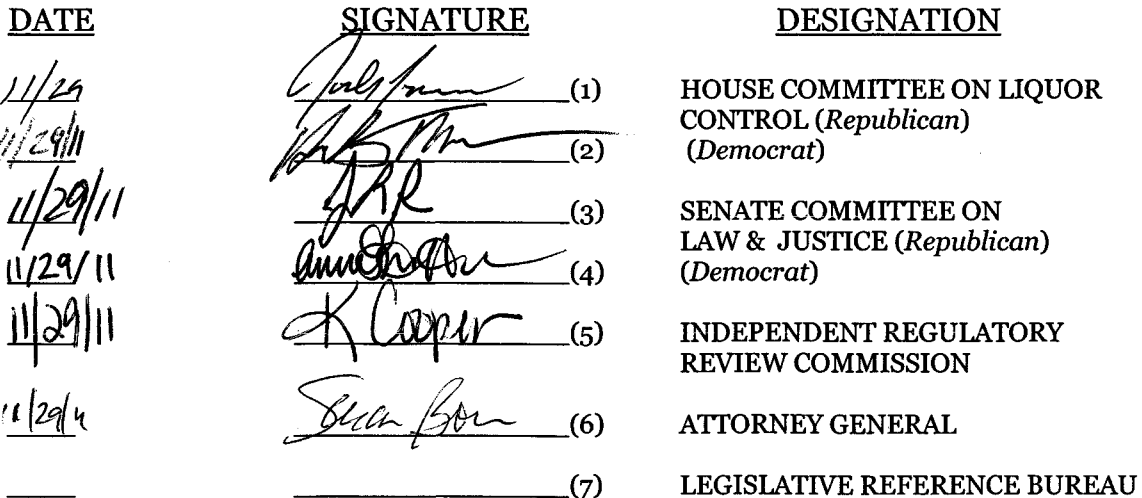 DATE SIGNATURE DESIGNATION
11/29 (1) HOUSE COMMITTEE ON LIQUOR
CONTROL (Republican)
11/29/11 (2) (Democrat)
11/29/11 JRR (3) SENATE COMMITTEE ON
LAW & JUSTICE (Republican)
11/29/11 (4) (Democrat)
11/29/11 K Cooper (5) INDEPENDENT REGULATORY
REVIEW COMMISSION
11/29/11 (6) ATTORNEY GENERAL
(7) LEGISLATIVE REFERENCE BUREAU